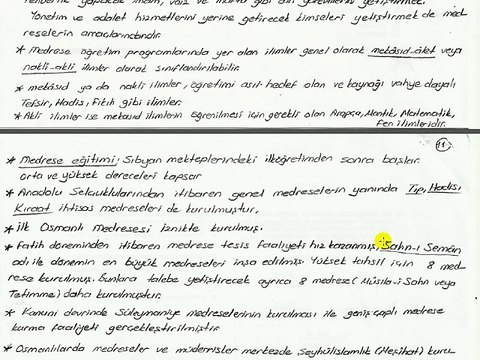 Yönetim ve adalet hizmetlerini yerine getirecek kimseleri yetiştirmek de med
reselerin amaçlarındandır.
* Medrese öğretim programlarında yer alan ilimler genel olarak mekasıd-alet veya
nakli-akli ilimler olarak sınıflandırılabilir.
* mekasıd ya da nakli ilimler, öğretimi asıl hedef olan ve kaynağı vahye dayalı
Tefsir, Hadis, Fıkıh gibi ilimler
* Akli ilimler ise mekasıd ilimlerin öğrenilmesi için gerekli olan Arapça, Mantık, Matematik,
Fen ilimleridir.
11
* Medrese eğitimi; Sıbyan mekteplerindeki ilköğretimden sonra başlar.
orta ve yüksek dereceleri kapsar
* Anadolu Selçuklularından itibaren genel medreselerin yanında Tıp, Hadis,
Kıraat ihtisas medreseleri de kurulmuştur.
* İlk Osmanlı medresesi iznikte kurulmuş.
* Fatih döneminden itibaren medrese tesis faaliyeti hız kazanmış, Sahn-ı Semân
adı ile dönemin en büyük medreseleri inşa edilmiş. Yüksek tahsil için 8 med
rese kurulmuş. Bunlara talebe yetiştirecek ayrıca 8 medrese (Mûsıla-i Sahn veya
Tetimme) daha kurulmuştur.
* Kanuni devrinde Süleymaniye medreselerinin kurulması ile geniş çaplı medrese
kurma faaliyeti gerçekleştirilmiştir
* Osmanlılarda medreseler ve müderrisler merkezde Şeyhülislamlık (Meşihat) kuru